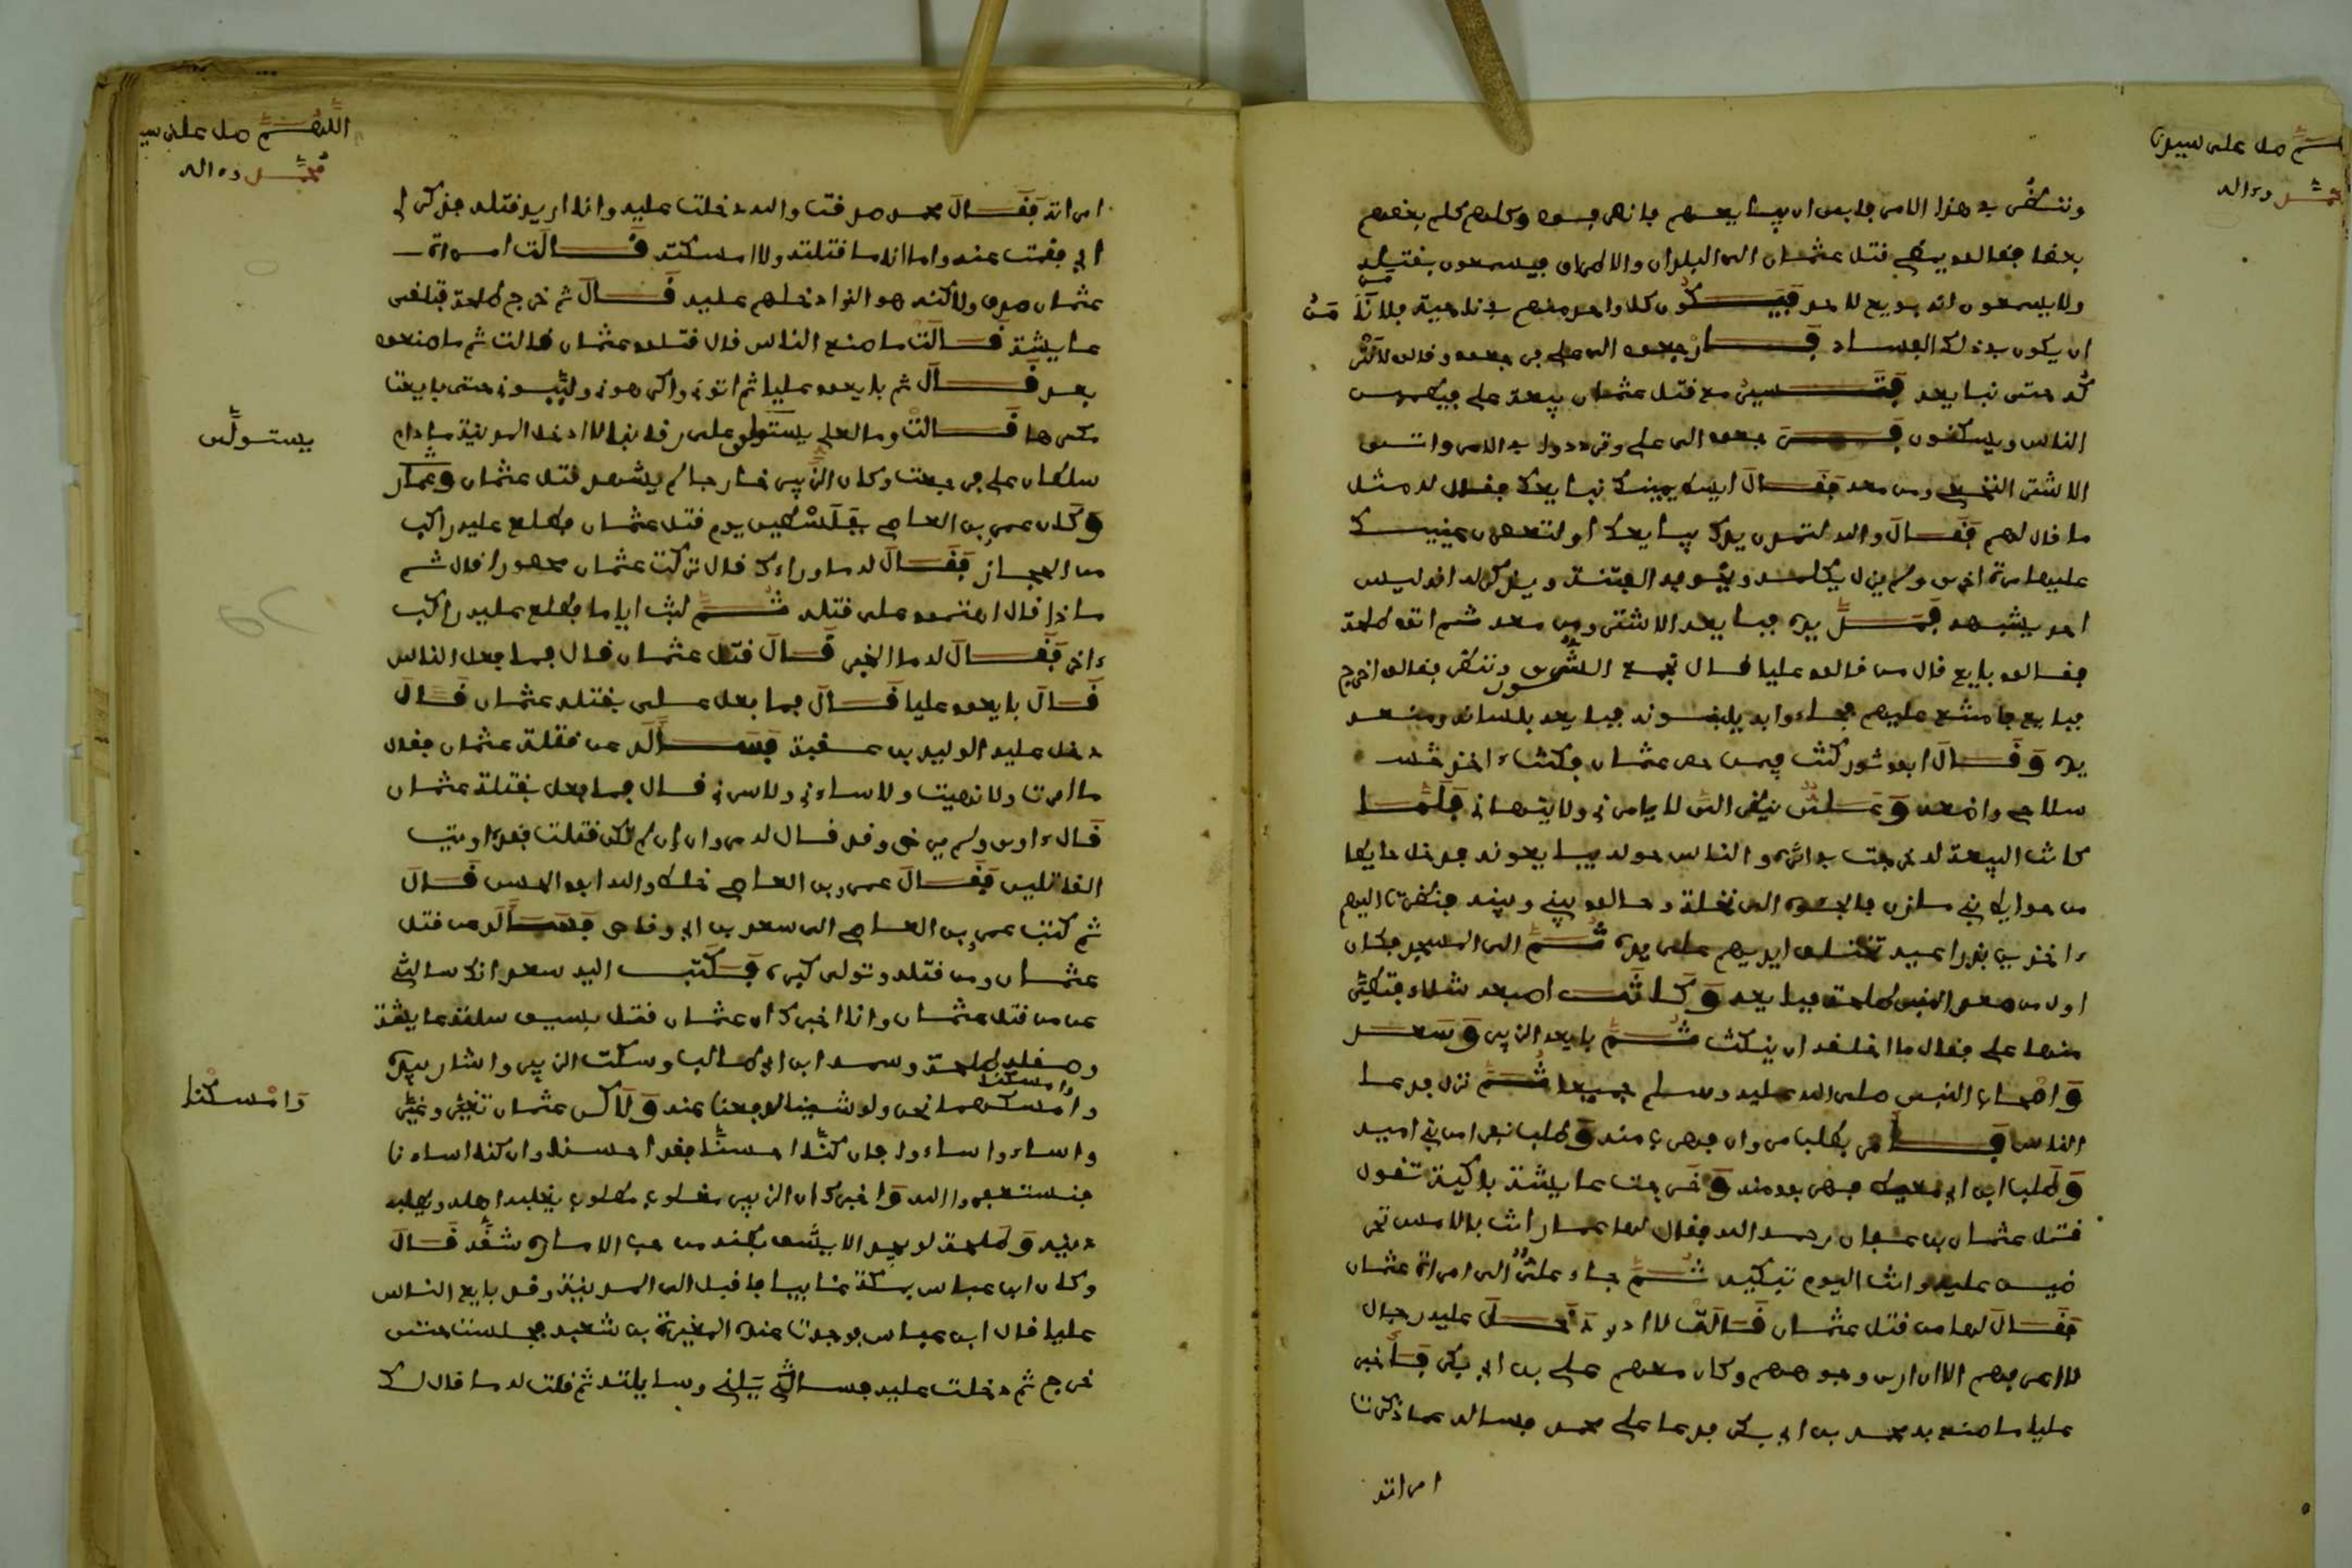 اللهم صل على سيدنا
محمد وءاله
وننظر في هذا الامر فابى ان يبايعهم فانصرفوا وكلهم كلم بعضهم
بعضا فقالوا يمضي قتل عثمان الى البلدان والامصار فيسمعون بقتله
ولا يسمعون انه بويع لاحد فيكون كل واحد منهم في ناحية فلا نامن
ان يكون في ذلك الفساد فارجعوا الى علي فرجعوا وقالوا لا نتر
كه حتى نبايعه فتسير مع قتل عثمان بيعة علي فيطمئن
الناس ويسكنون فرجعوا الى علي وترددوا في الامر واتى
الاشتر النخعي ومن معه فقال ابسط يمينك نبايعك فقال له مثل
ما قال لهم فقال والله لتمدن يدك نبايعك او لتعصرن عينيك
عليها مرة اخرى ولم يزل يكلمه ويخوفه الفتنة ويذكر له انه ليس
احد يشبهه فمد يده فبايعه الاشتر ومن معه ثم اتوا طلحة
فقالوا بايع قال من قالوا عليا قال تجمع الشورى وننظر فقالوا اخرج
فبايع فامتنع عليهم فجاءوا به يلببونه فبايعه بلسانه ومنعه
يده وقال ابو ثور كنت فيمن حصر عثمان فكنت ءاخذ
سلاحي واضعه وعلي ينظر الي لا يامرني ولا ينهاني فلما
كانت البيعة له خرجت في اثره والناس حوله يبايعونه فدخل حايطا
من حوايط بني مازن فالجئوه الى نخلة وحالوا بيني وبينه فنظرت اليهم
ءاخذين بذراعيه تختلف ايديهم على يده ثم الى المسجد فكان
اول من صعد المنبر طلحة فبايعه وكانت اصبعه شلاء فتطير
منها علي فقال ما اخلقه ان ينكث ثم بايعه الزبير وسعد
واصحاب النبي صلى الله عليه وسلم جميعا ثم نزل فدعا
الناس فامر بطلب مروان فهرب منه وطلب نفرا من بني امية
وطلب ابن ابي معيط فهربوا منه وخرجت عايشة باكية تقول
قتل عثمان بن عفان رحمه الله فقال لها عمار انت بالامس تحر
ضين عليه وانت اليوم تبكيه ثم جاء علي الى امراة عثمان
فقال لها من قتل عثمان قالت لا ادري دخل عليه رجال
لا اعرفهم الا ان ارى وجوههم وكان معهم علي بن ابي بكر فاخبر
عليا ما صنع به محمد بن ابي بكر فدعا علي محمد فساله عما ذكرت
امراته
اللهم صل على سيدنا
محمد وءاله
امراته فقال محمد صدقت والله دخلت عليه وانا اريد قتله فذكر لي
ابي فقمت عنه واما انا ما قتلته ولا امسكته قالت امراة
عثمان صدق ولاكنه هو الذي ادخلهم عليه قال ثم خرج طلحة فلقى
عايشة قالت ما صنع الناس قال قتلوا عثمان قالت ثم ما صنعوا
بعد قال ثم بايعوا عليا ثم اتوني واكرهوني ولببوني حتى بايعت
مكرها قالت وما لعلي يستولي على رقابنا لا ادخل المدينة ما دام
يستولى
سلطان علي فرجعت وكان الزبير خارجا لم يشهد قتل عثمان
وكان عمرو بن العاصي بفلسطين يوم قتل عثمان فطلع عليه راكب
من الحجاز فقال له ما وراءك قال تركت عثمان محصورا قال ثم
ماذا قال اجتمعوا على قتله ثم لبث اياما فطلع عليه راكب
ءاخر فقال له ما الخبر قال قتل عثمان قال فما فعل الناس
قال بايعوا عليا قال فما فعل علي بقتلة عثمان قال
دخل عليه الوليد بن عقبة فساله عن قتلة عثمان فقال
ما امرت ولا نهيت ولا ساءني ولا سرني قال فما فعل بقتلة عثمان
قال ءاوى ولم يرض وقد قال له مروان ان لم تكن قتلت فقد ءاويت
القاتلين فقال عمرو بن العاصي خلط والله ابو الحسن قال
ثم كتب عمرو بن العاصي الى سعد بن ابي وقاص فساله من قتل
عثمان ومن قتله وتولى كبره فكتب اليه سعد انك سالتني
عن من قتل عثمان وانا اخبرك ان عثمان قتل بسيف سلته عايشة
وصقله طلحة وسمه ابن ابي طالب وسكت الزبير واشار بيده
وامسكنا نحن ولو شينا لدفعنا عنه ولاكن عثمان تغير وغير
وامسكنا
واساء واساءوا فان كنا احسنا فقد احسنا وان كنا اسانا
فنستغفر الله واخبرك ان الزبير مغلوب مطلوب يغلبه اهله ويطلبه
دينه وطلحة لو يجد الا يشق بطنه من حب الامارة شقه قال
وكان ابن عباس بمكة غايبا فاقبل الى المدينة وقد بايع الناس
عليا قال ابن عباس فوجدت عنده المغيرة بن شعبة فجلست حتى
خرج ثم دخلت عليه فسالني وسايلته ثم قلت له ما قال لك